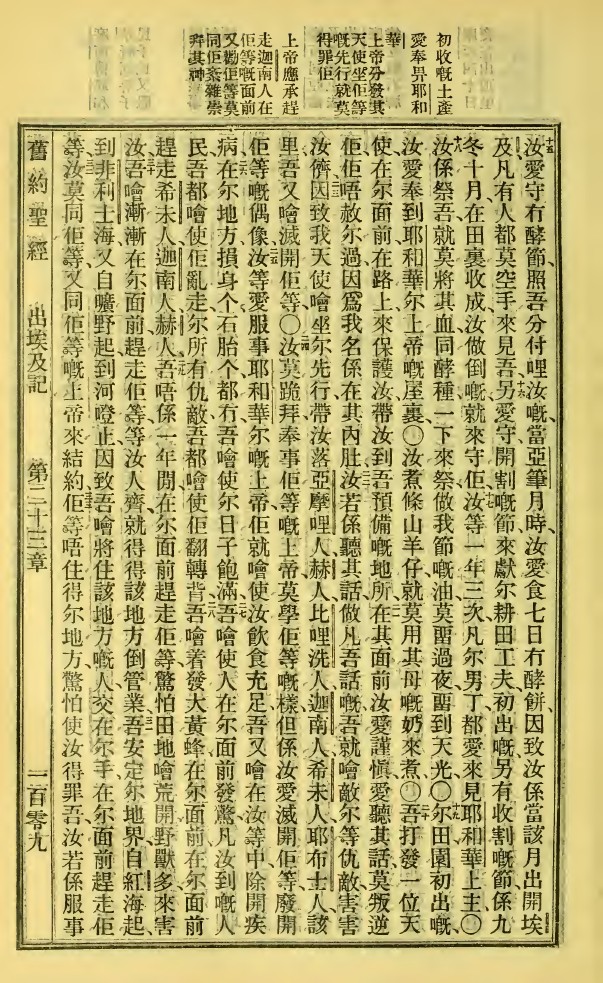 初收嘅土產
愛奉畀耶和
華
上帝分發其
天使坐佢等
嘅先行就莫
得罪佢
上帝應承趕
走迦南人在
佢等嘅面前
又勸佢等莫
同佢紊雜崇
拜其神
十五
汝愛守冇酵節照吾分付哩汝嘅當亞筆月時汝愛食七日冇酵餅因致汝係當該月出開埃
及凡有人都莫空手來見吾另愛守開割嘅節來獻尔耕田工夫初出嘅另有收割嘅節係九
冬十月在田裏收成汝做倒嘅就來守佢汝等一年三次凡尔男丁都愛來見耶和華上主〇
汝係祭吾就莫將其血同酵種一下來祭做我節嘅油莫畱過夜畱到天光〇尔田園初出嘅
汝愛奉到耶和華尔上帝嘅屋裏〇汝煑條山羊仔就莫用其母嘅奶來煑〇吾打發一位天
使在尔面前在路上來保護汝帶汝到吾預備嘅地所在其面前汝愛謹愼愛聽其話莫叛逆
佢佢唔赦尔過因爲我名係在其內肚汝若係聽其話做凡吾話嘅吾就噲敵尔等仇敵害害
汝儕因致我天使噲坐尔先行帶汝落亞摩哩人赫人比哩洗人迦南人希未人耶布士人該
里吾又噲滅開佢等〇汝莫跪拜奉事佢等嘅上帝莫學佢等嘅樣但係汝愛滅開佢等廢開
佢等嘅偶像汝等愛服事耶和華尔嘅上帝佢就噲使汝飲食充足吾又噲在汝等中除開疾
病在尔地方損身个石胎个都冇吾噲使尔日子飽滿吾噲使人在尔面前發驚凡汝到嘅人
民吾都噲使佢亂走尔所有仇敵吾都噲使佢翻轉背吾噲着發大黃蜂在尔面前在尔面前
趕走希未人迦南人赫人吾唔係一年間在尔面前趕走佢等驚怕田地噲荒開野獸多來害
汝吾噲漸漸在尔面前趕走佢等等汝人齊就得得該地方倒管業吾安定尔地界自紅海起
到非利士海又自曠野起到河嶝止因致吾噲將住該地方嘅人交在尔手在尔面前趕走佢
等汝莫同佢等又同佢等嘅上帝來結約佢等唔住得尔地方驚怕使汝得罪吾汝若係服事
舊約聖經 出埃及記 第二十三章 一百零九